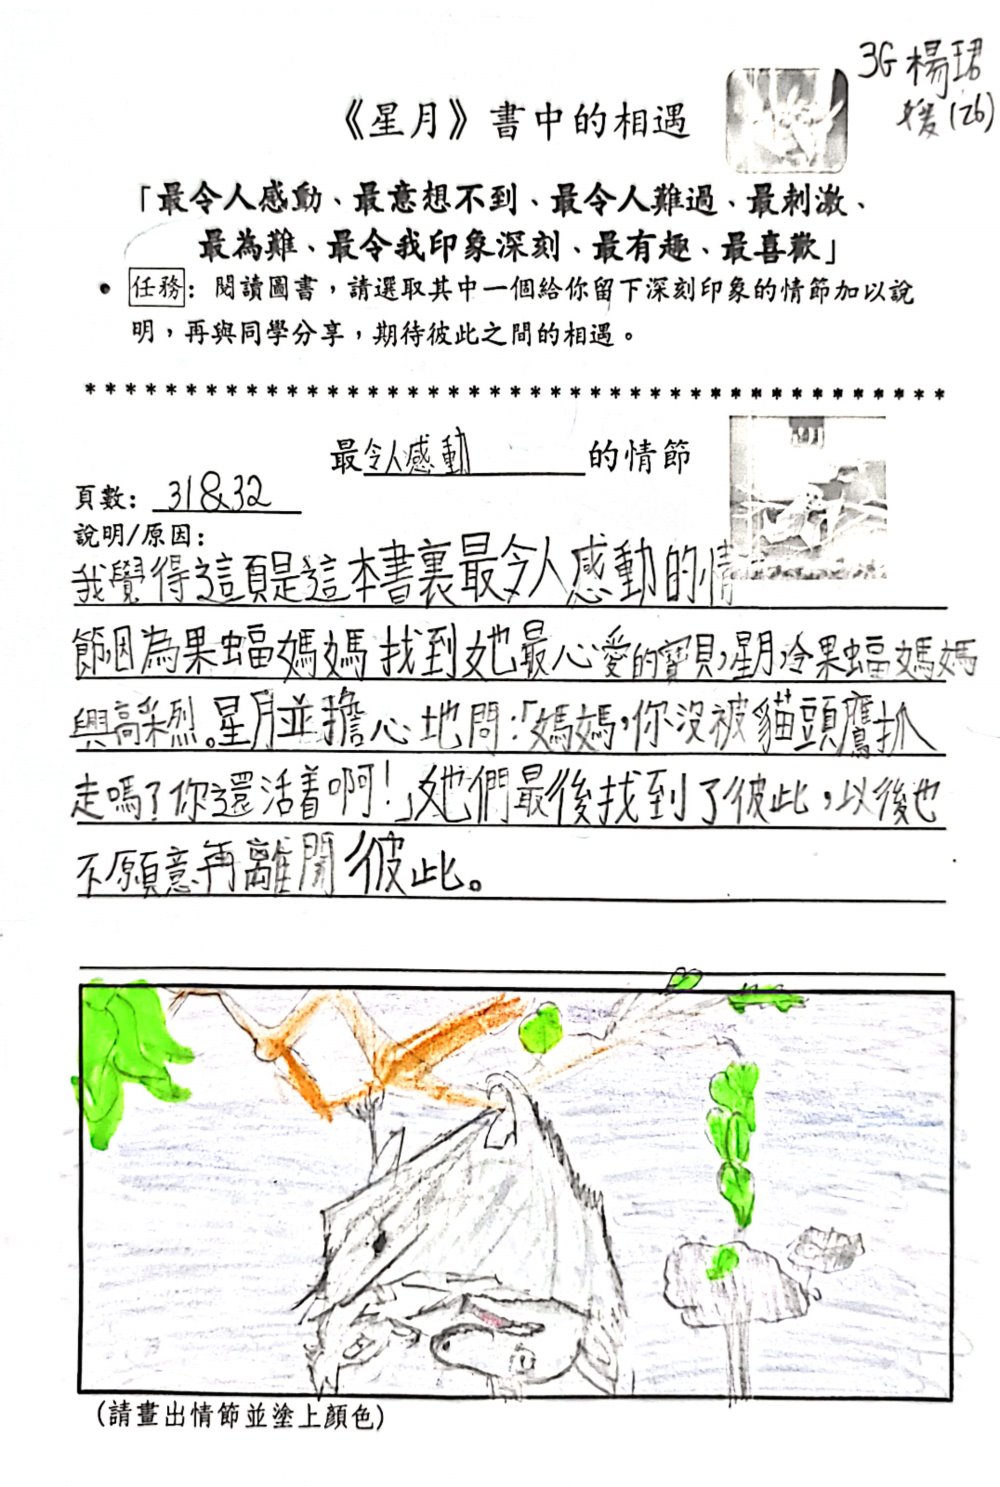 3G 楊珺
媛(26)
《星月》書中的相遇
「最令人感動、最意想不到、最令人難過、最刺激、
最為難、最令我印象深刻、最有趣、最喜歡」
• 任務：閱讀圖書，請選取其中一個給你留下深刻印象的情節加以說
明，再與同學分享，期待彼此之間的相遇。
****************************************
最令人感動的情節
頁數：31&32
說明/原因：
我覺得這頁是這本書裏最令人感動的情
節因為果蝠媽媽找到她最心愛的寶貝，星月，令果蝠媽媽
興高采烈。星月並擔心地問：「媽媽，你沒被貓頭鷹抓
走嗎？你還活着啊！」她們最後找到了彼此，以後也
不願意再離開彼此。
(請畫出情節並塗上顏色)